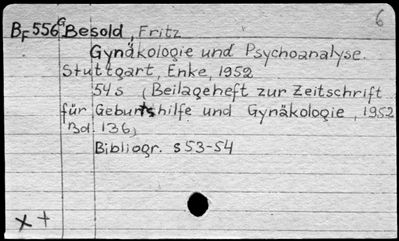 6
BF556G Besold, Fritz
Gynäkologie und Psychoanalyse.
Stuttgart, Enke, 1952
54 s (Beilageheft zur Zeitschrift
für Geburtshilfe und Gynäkologie, 1952
Bd. 136)
Bibliogr. s 53-54
x +